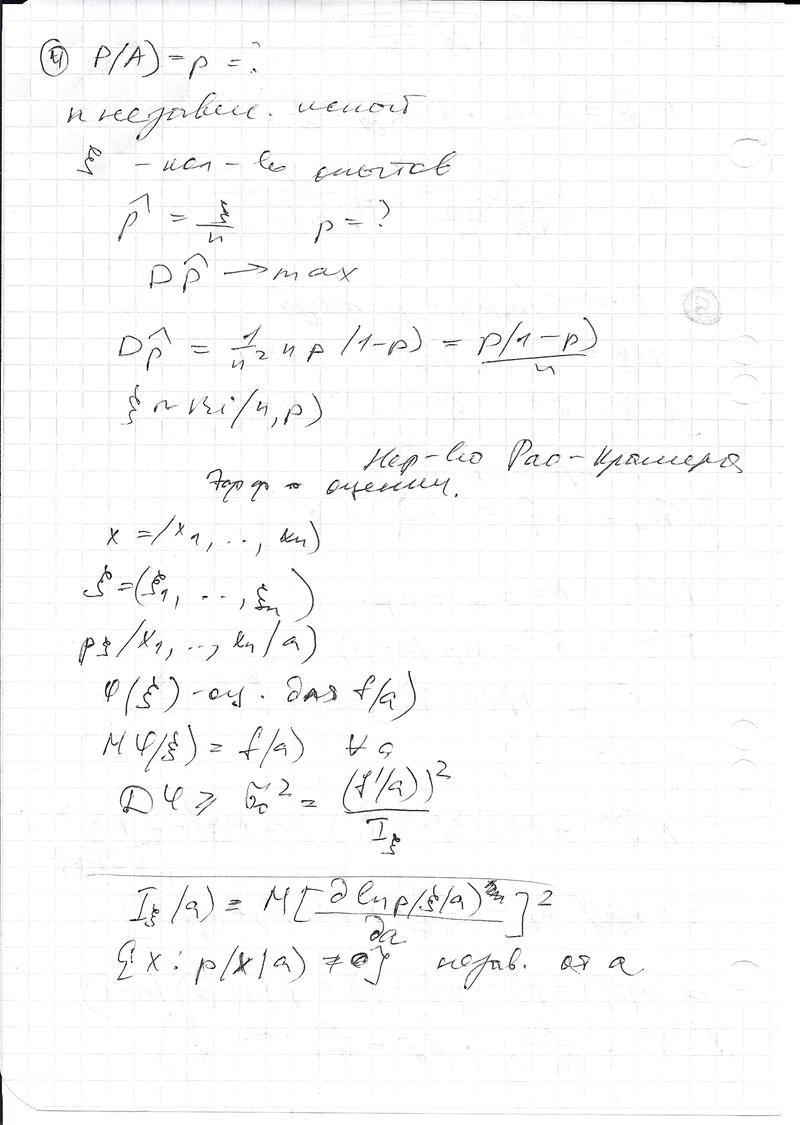 ④ P(A) = p = ?
n независ. испыт
ξ - кол-во опытов
p̂ = ξ/n p = ?
Dp̂ → max
Dp̂ = 1/n² n p (1-p) = p(1-p)/n
ξ ~ Bi(n, p)
Нер-во Рао-Крамера
Эфф оценки.
x = (x₁, .., xₙ)
ξ = (ξ₁, ..., ξₙ)
pξ(x₁, .., xₙ/a)
φ(ξ) - оц. для f(a)
Mφ(ξ) = f(a) ∀ a
Dφ ≥ σ² = (f'(a))²/Iξ
Iξ(a) = M[∂ ln p(ξ/a)/∂a]²
{x : p(x/a) ≠ 0} незав. от a